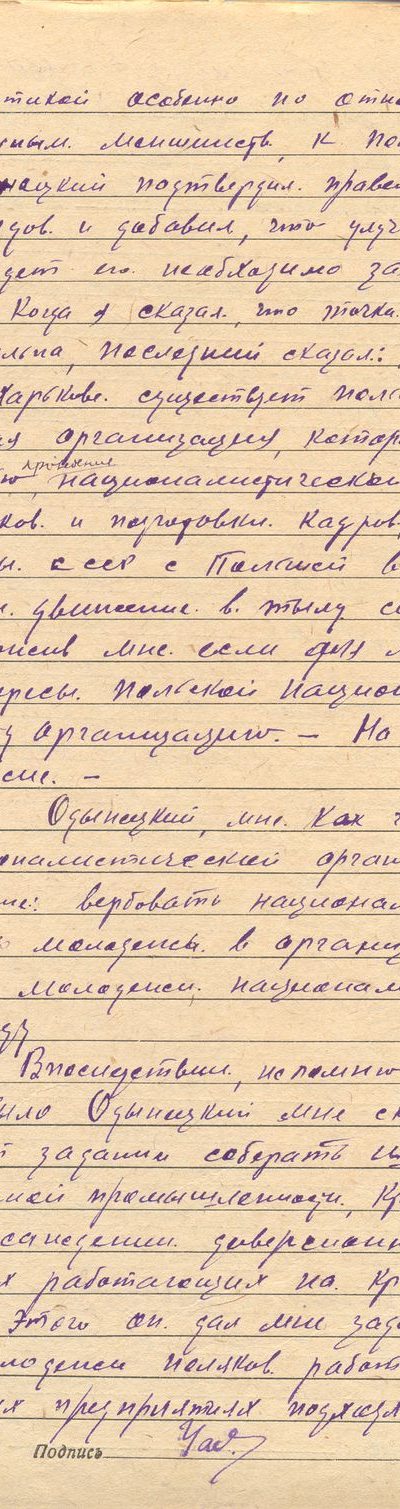 тикой особенно по отно
ным. меншинств, к пол
нецкий подтвердил. правел
дов. и добавил, что улуч
дет его необходимо за
Когда я сказал, что точка.
льна, последний сказал:
Харькове. существует поль
ая организация, котор
ю, проведение националистической
ков. и подготовки. кадров
ы. СССР с Польшей в
и. движение. в. тылу со
жив мне. если
ресы. польской национ
у организацию. — На
сие. —
Одынецкий, мне. как
оналистической орган
ие: вербовать национал
молодежь. в органи
молодежи. национал
Впоследствии, исполню
ыло Одынецкий мне с
задании собирать
ной промышленности, Кр
саждении. диверсион
х работающих на. Кр
Этого он. дал мне зад
лодежи поляков. работ
ых предприятиях подход
Подпись